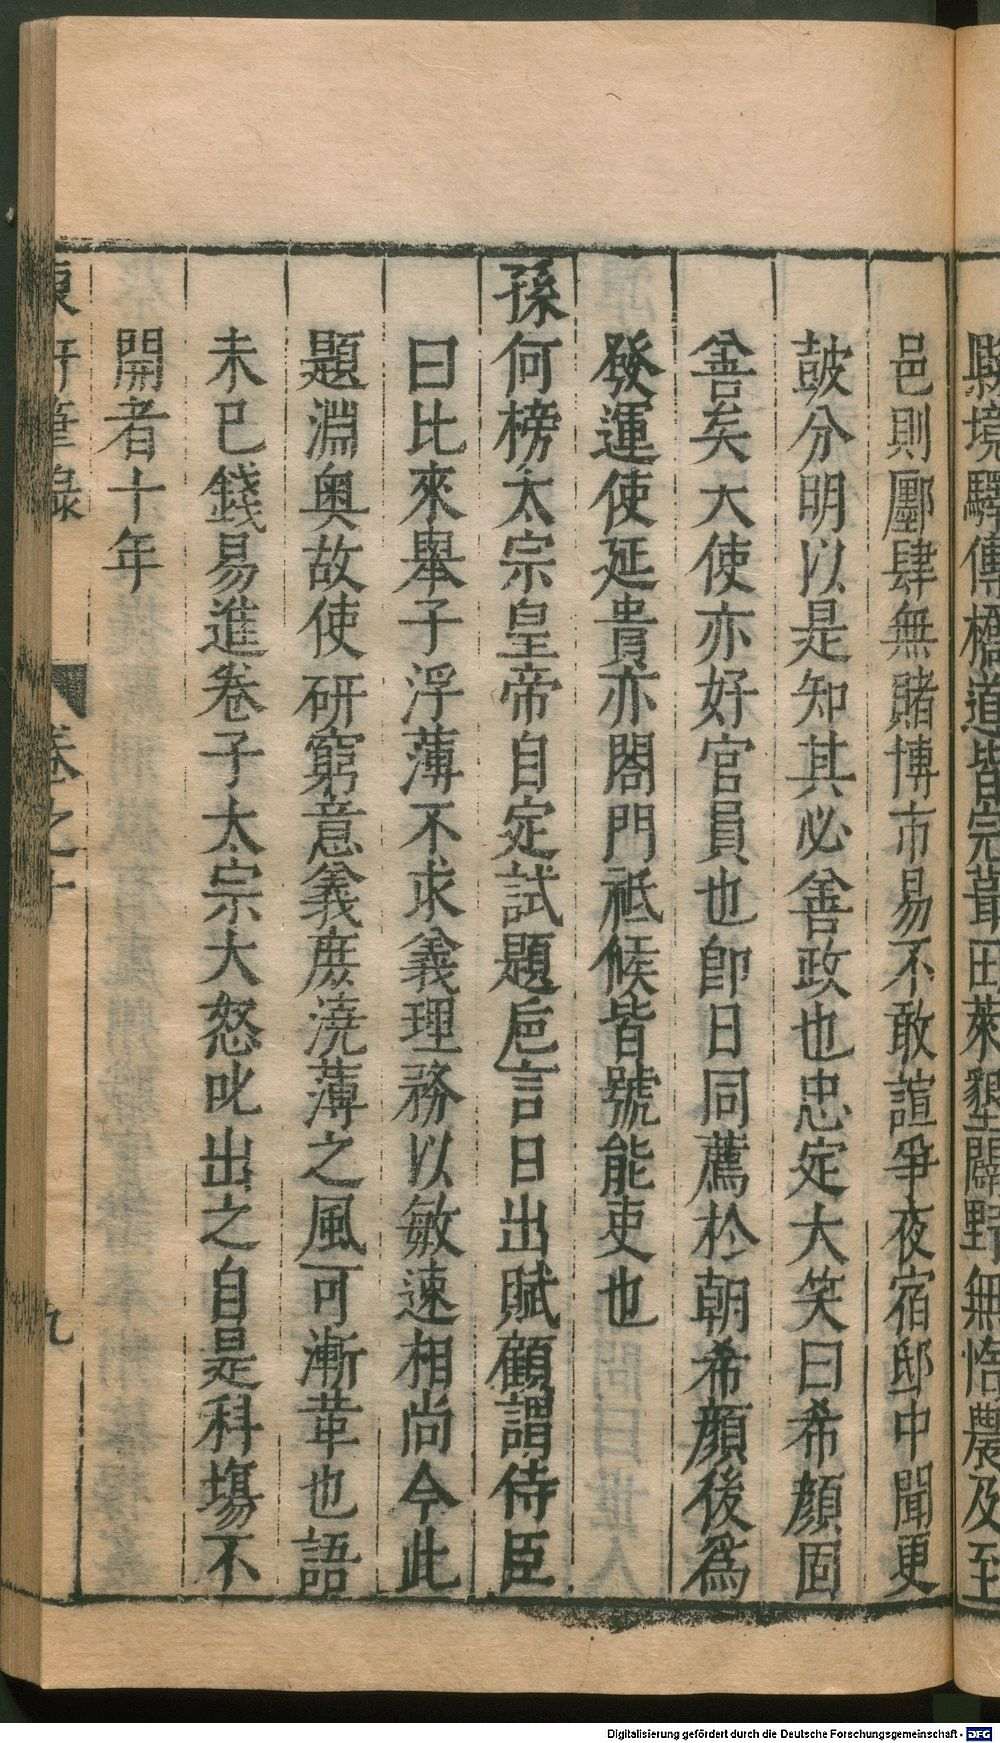 縣境驛傳橋道皆完葺田萊墾闢野無惰農及至
邑則鄽肆無賭博市易不敢諠爭夜宿邸中聞更
皷分明以是知其必善政也忠定大笑曰希顔固
善矣大使亦好官員也卽日同薦於朝希顔後爲
發運使延貴亦閤門祗候皆號能吏也
孫何榜太宗皇帝自定試題巵言日出賦顧謂侍臣
曰比來舉子浮薄不求義理務以敏速相尚今此
題淵奥故使研窮意義庻澆薄之風可漸革也語
未已錢易進卷子太宗大怒叱出之自是科塲不
開者十年
東軒筆錄
卷之十
九
Digitalisierung gefördert durch die Deutsche Forschungsgemeinschaft - DFG